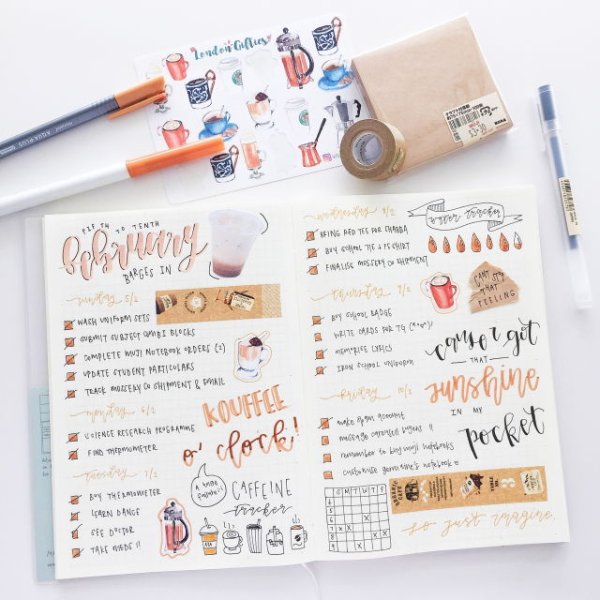 London Gifties
FIFTH TO TENTH
February
BARGES IN
sunday 5/2
WASH UNIFORM SETS
SUBMIT SUBJECT COMBI BLOCKS
COMPLETE MUJI NOTEBOOK ORDERS (2)
UPDATE STUDENT PARTICULARS
TRACK MOSSERY CO SHIPMENT & EMAIL
monday 6/2
SCIENCE RESEARCH PROGRAMME
FIND THERMOMETER
tuesday 7/2
BUY THERMOMETER
LEARN DANCE
SEE DOCTOR
TAKE MEDS !!
KOUFFEE
o' clock!
CAFFEINE
tracker
wednesday 8/2
BRING RED TEE FOR
BUY SCHOOL TIE & PE SHIRT
FINALISE MOSSERY CO SHIPMENT
water tracker
thursday 9/2
BUY SCHOOL BADGE
WRITE CARDS FOR TG
MEMORISE LYRICS
IRON SCHOOL UNIFORM
CAN'T STOP
THAT
FEELING
friday 10/2
make account
message carousell buyers !!
remember to buy muji notebooks
customise notebook
cause i got
THAT
sunshine
IN MY
pocket
S M T W T F
4
5
6
7 X X
8 X
9 X X
so just imagine